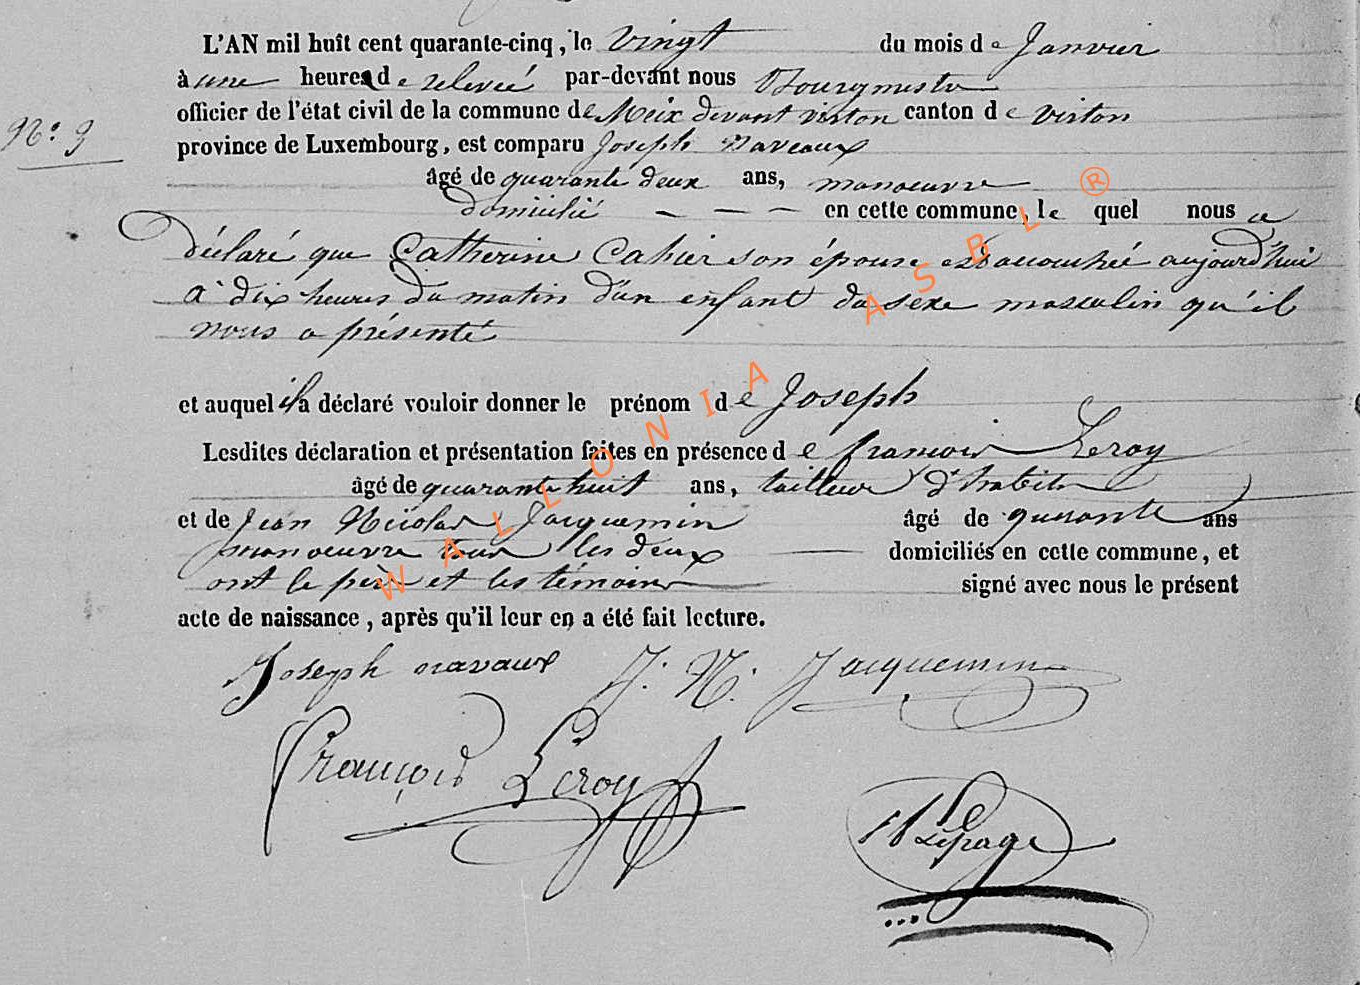 L'AN mil huit cent quarante-cinq, le vingt du mois de Janvier
à une heure de relevée par-devant nous Bourgmestre
officier de l'état civil de la commune de Meix devant virton canton de virton
N.° 9
province de Luxembourg, est comparu Joseph Navaux
âgé de quarante deux ans, manoeuvre
domicilié — — — en cette commune, lequel nous a
déclaré que Catherine Cahier son épouse est accouchée aujourd'hui
à dix heures du matin d'un enfant du sexe masculin qu'il
nous a présenté
et auquel il a déclaré vouloir donner le prénom de Joseph
Lesdites déclaration et présentation faites en présence de francois Leroy
âgé de quarante huit ans, tailleur d'habits
et de Jean Nicolas Jacquemin âgé de quarante ans
manoeuvre tous les deux — domiciliés en cette commune, et
ont le père et les témoins signé avec nous le présent
acte de naissance, après qu'il leur en a été fait lecture.
Joseph navaux J. N. Jacquemin
François Leroy
Lepage
WALLONIA ASBL ®